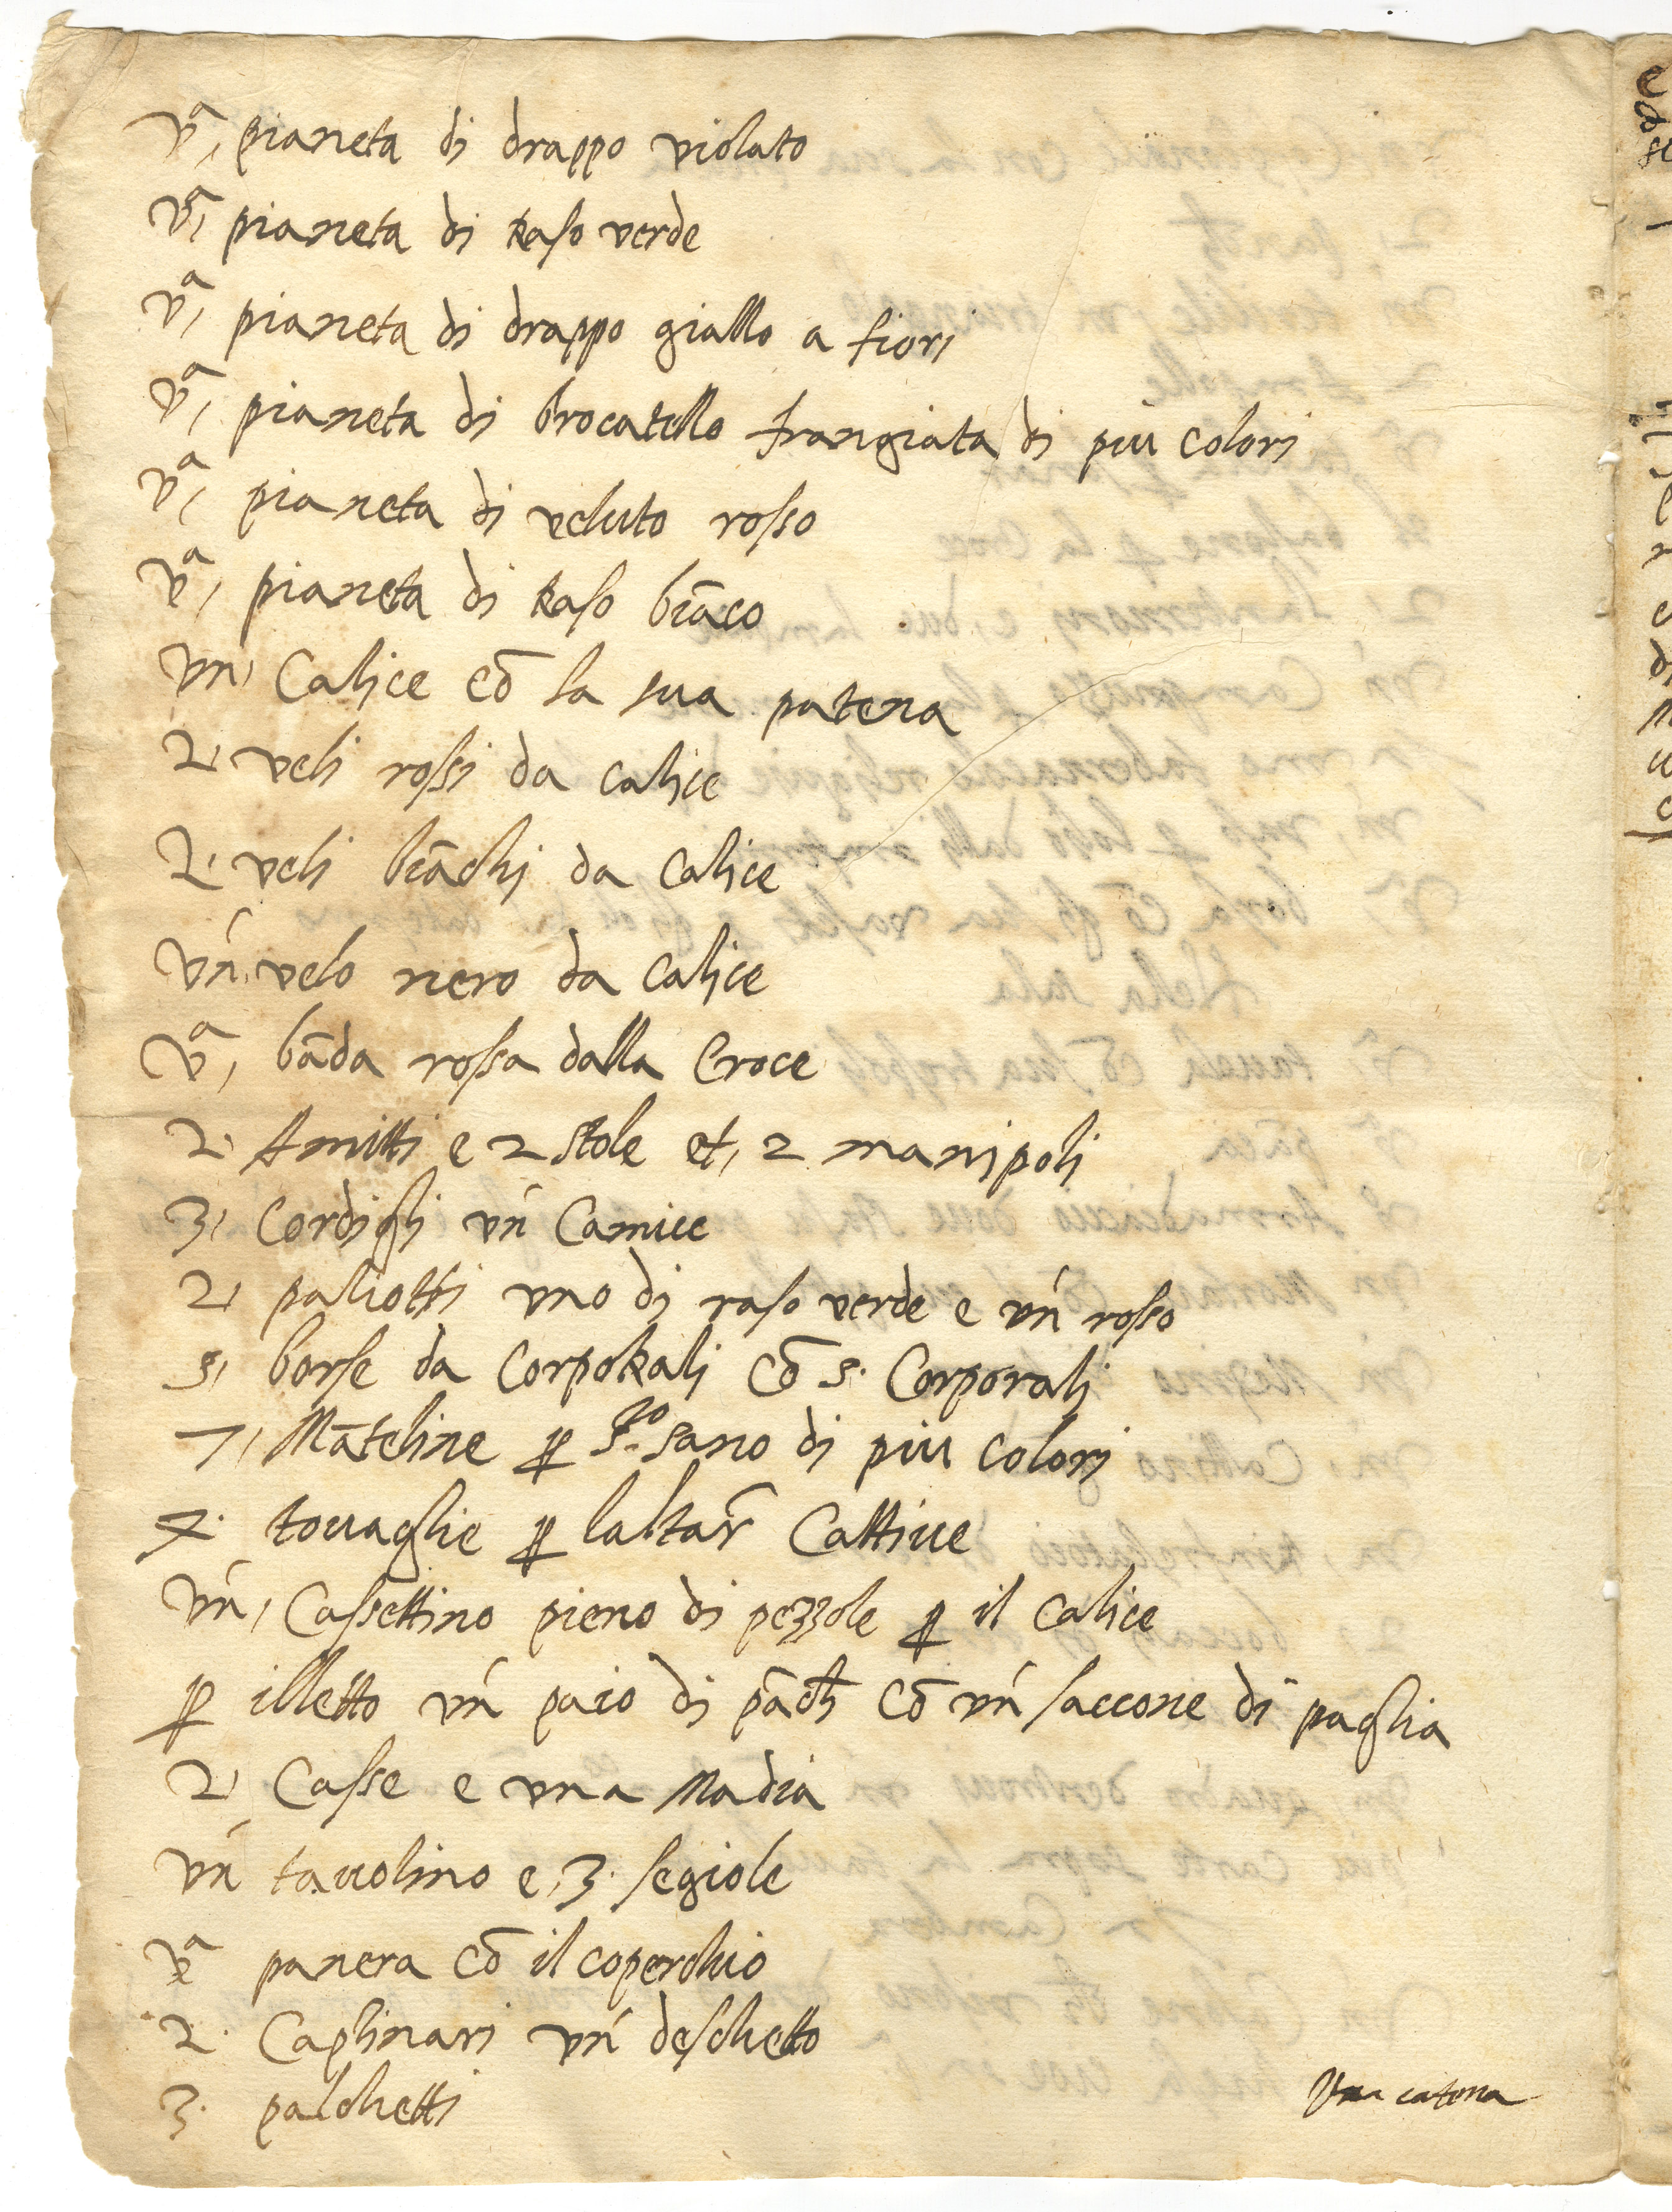 vᵃ, pianeta di drappo violato
vᵃ, pianeta di raso verde
vᵃ, pianeta di drappo giallo a fiori
vᵃ, pianeta di brocatello frangiata di piu colori
vᵃ, pianeta di veluto rosso
vᵃ, pianeta di raso biāco
vn, Calice cō la sua patena
2, veli rossi da calice
2, veli biāchi da calice
vn, velo nero da calice
vᵃ, bāda rossa dalla Croce
2. Amitti e 2 stole et, 2 manipoli
3, Cordigli vn Camice
2, paliotti vno di raso verde e vn rosso
5, borse da Corporali cō 5. Corporali
7, Māteline ꝑ sᵗᵒ sano di piu colori
4. touaglie ꝑ laltar Cattiue
vn, Cassettino pieno di pezzole ꝑ il calice
ꝑ illetto vn paio di pāch cō vn saccone di paglia
2, Casse e vna Madia
vn tauolino e, 3. segiole
vᵃ panera cō il coperchio
2. Caplinari vn deschetto
3. palchetti
Vna catena